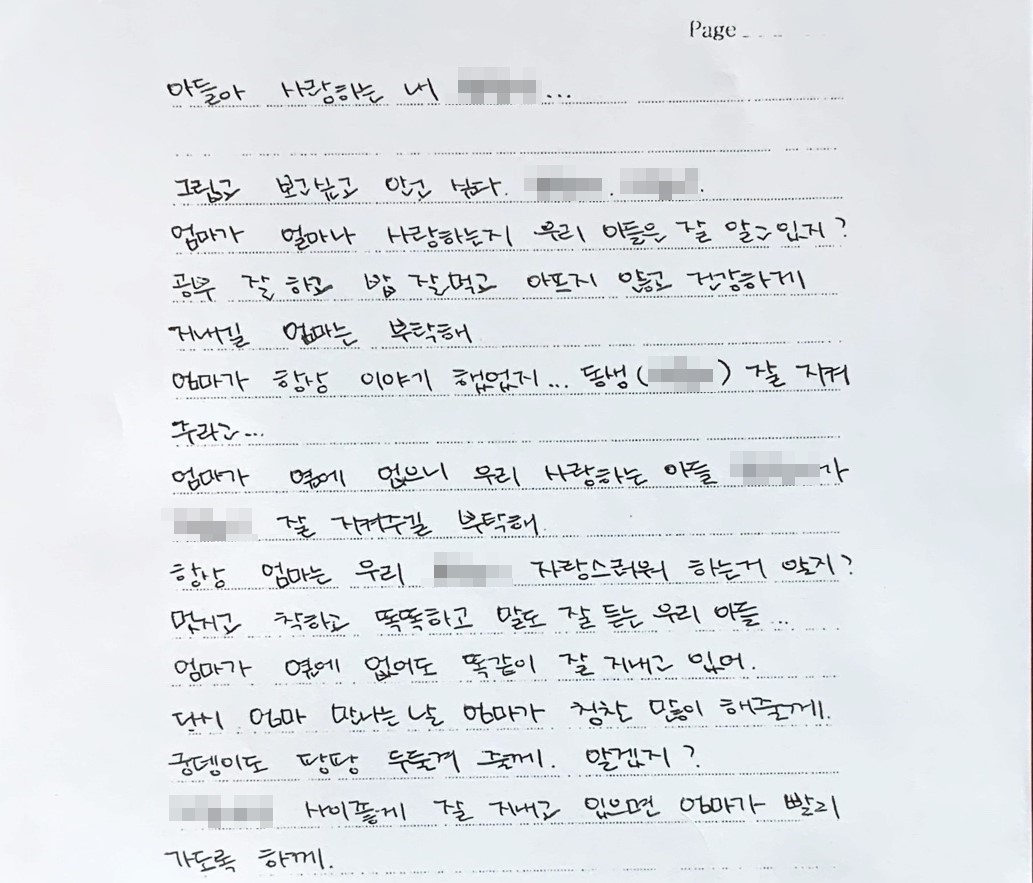 Page
아들아 사랑하는 내 ...
그립고 보고싶고 안고 싶다. . .
엄마가 얼마나 사랑하는지 우리 아들은 잘 알고있지?
공부 잘 하고 밥 잘먹고 아프지 않고 건강하게
지내길 엄마는 부탁해
엄마가 항상 이야기 했었지... 동생 ( ) 잘 지켜
주라고...
엄마가 옆에 없으니 우리 사랑하는 아들 가
잘 지켜주길 부탁해.
항상 엄마는 우리 자랑스러워 하는거 알지?
멋지고 착하고 똑똑하고 말도 잘 듣는 우리 아들...
엄마가 옆에 없어도 똑같이 잘 지내고 있어.
다시 엄마 만나는 날 엄마가 칭찬 많이 해줄께.
궁뎅이도 팡팡 두들겨 줄께. 알겠지?
사이좋게 잘 지내고 있으면 엄마가 빨리
가도록 하께.